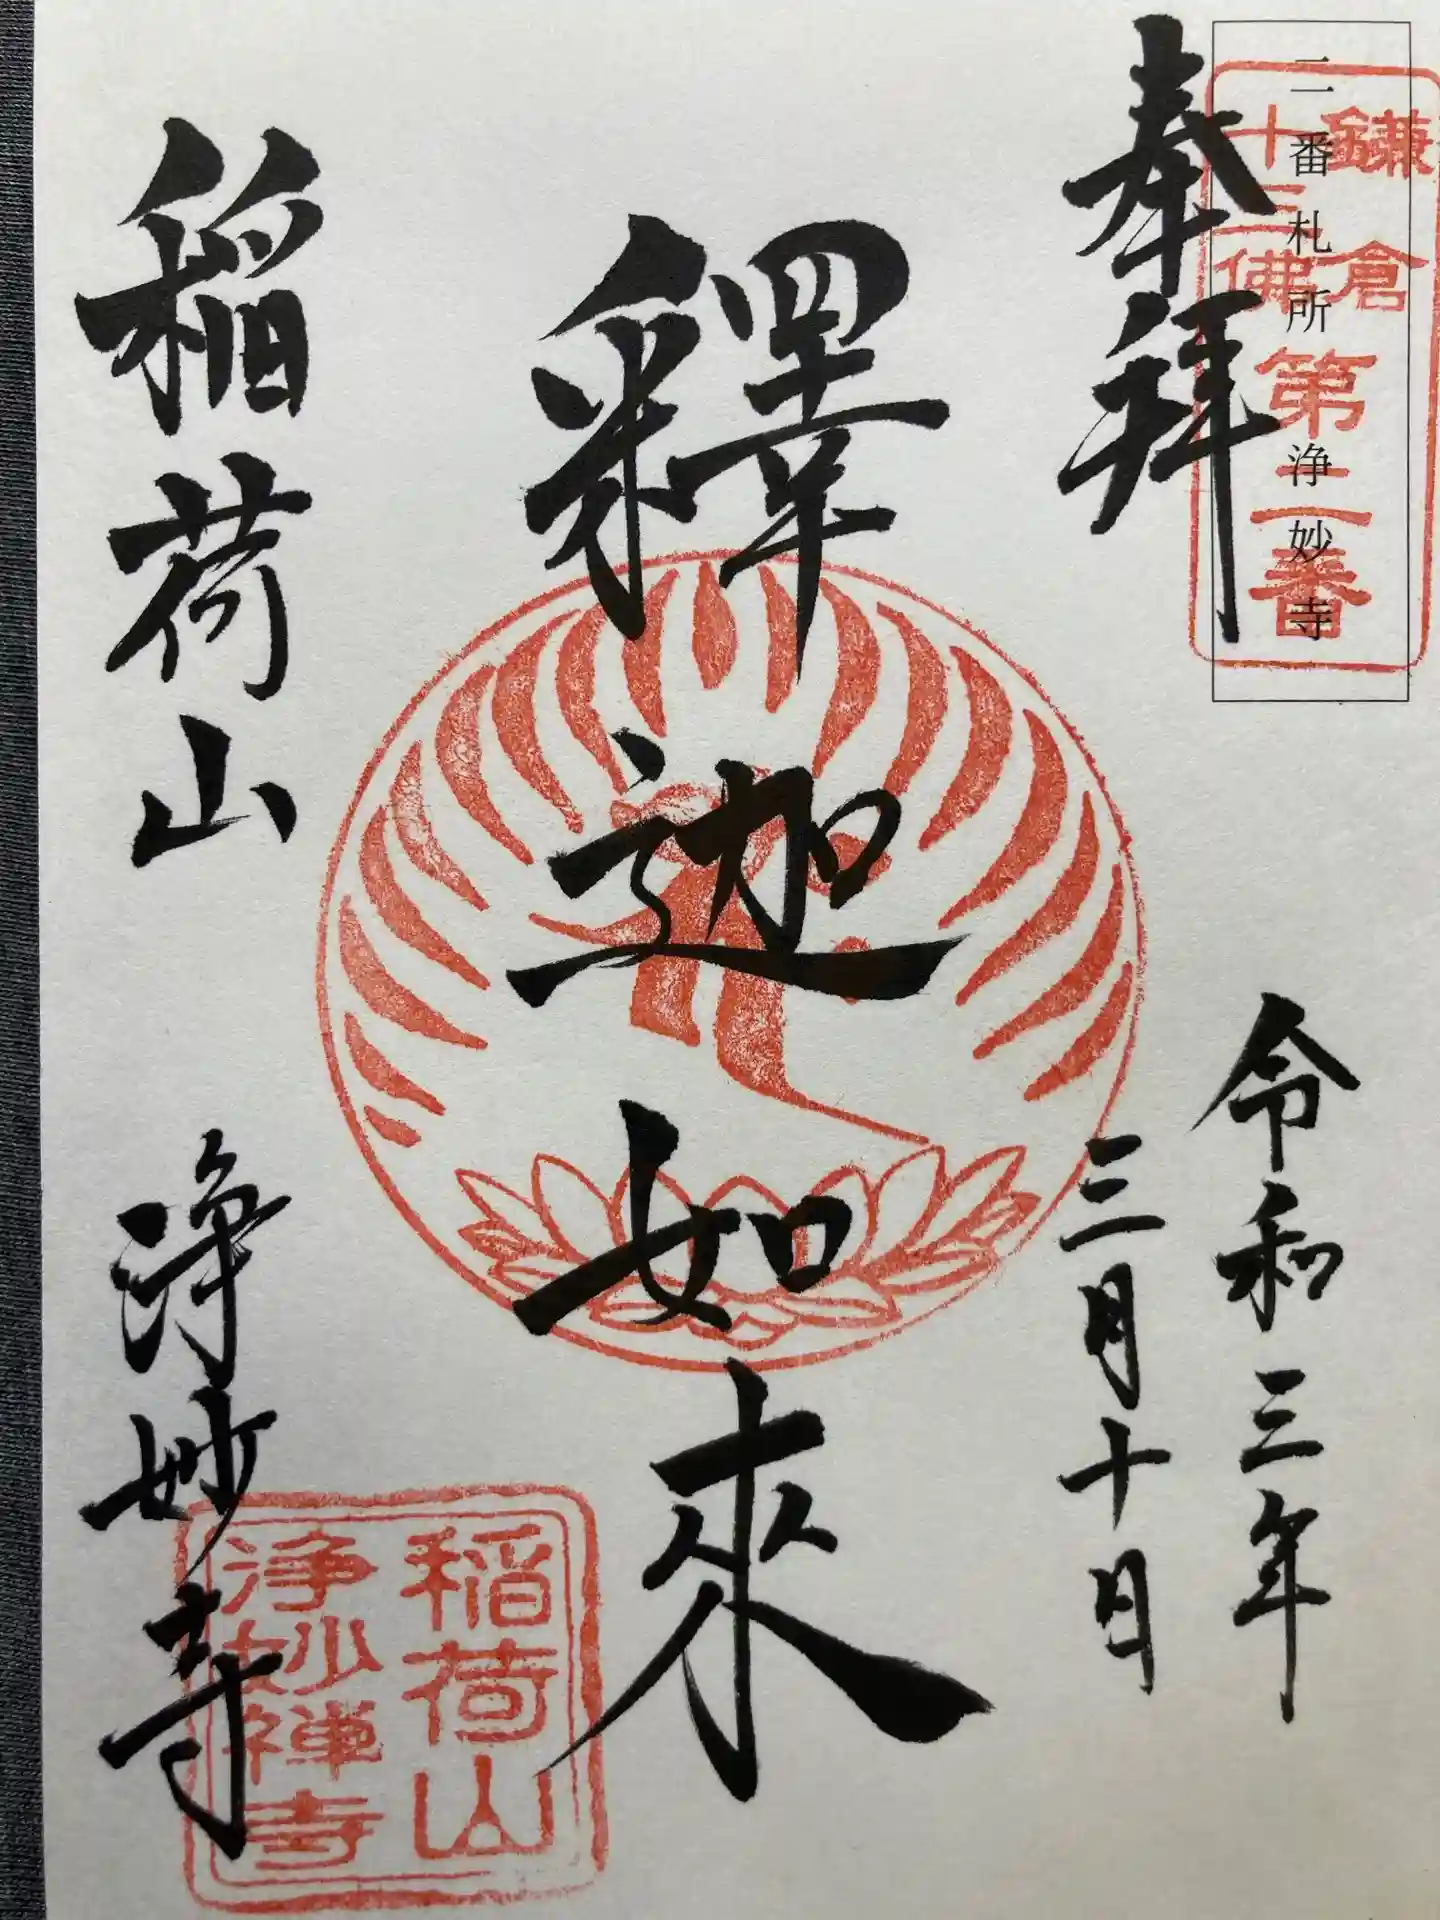 二番札所 浄妙寺
鎌倉
十三佛
第二番
奉拝
令和三年
三月十日
釋迦如來
稲荷山
浄妙寺
稲荷山
浄妙禅寺